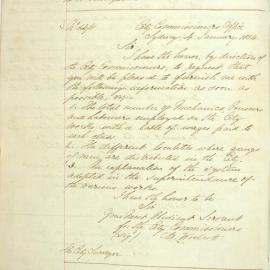 City Commissioners Office
Sydney 4 January 1854
Sir,
I have the honor, by direction of
the City Commissioners, to request that
you will be pleased to furnish me with
the following information as soon as
possible, viz
1. The total number of Mechanics
and Labourers employed on the City
Works with a table of wages paid to
each class
2. The different localities where gangs
of men are distributed in the City.
3. An explanation of the system
adopted in the Superintendence of
the various works.
I have the honor to be
Sir
Your Most Obedient Servant
for the City Commissioners
The City Surveyor